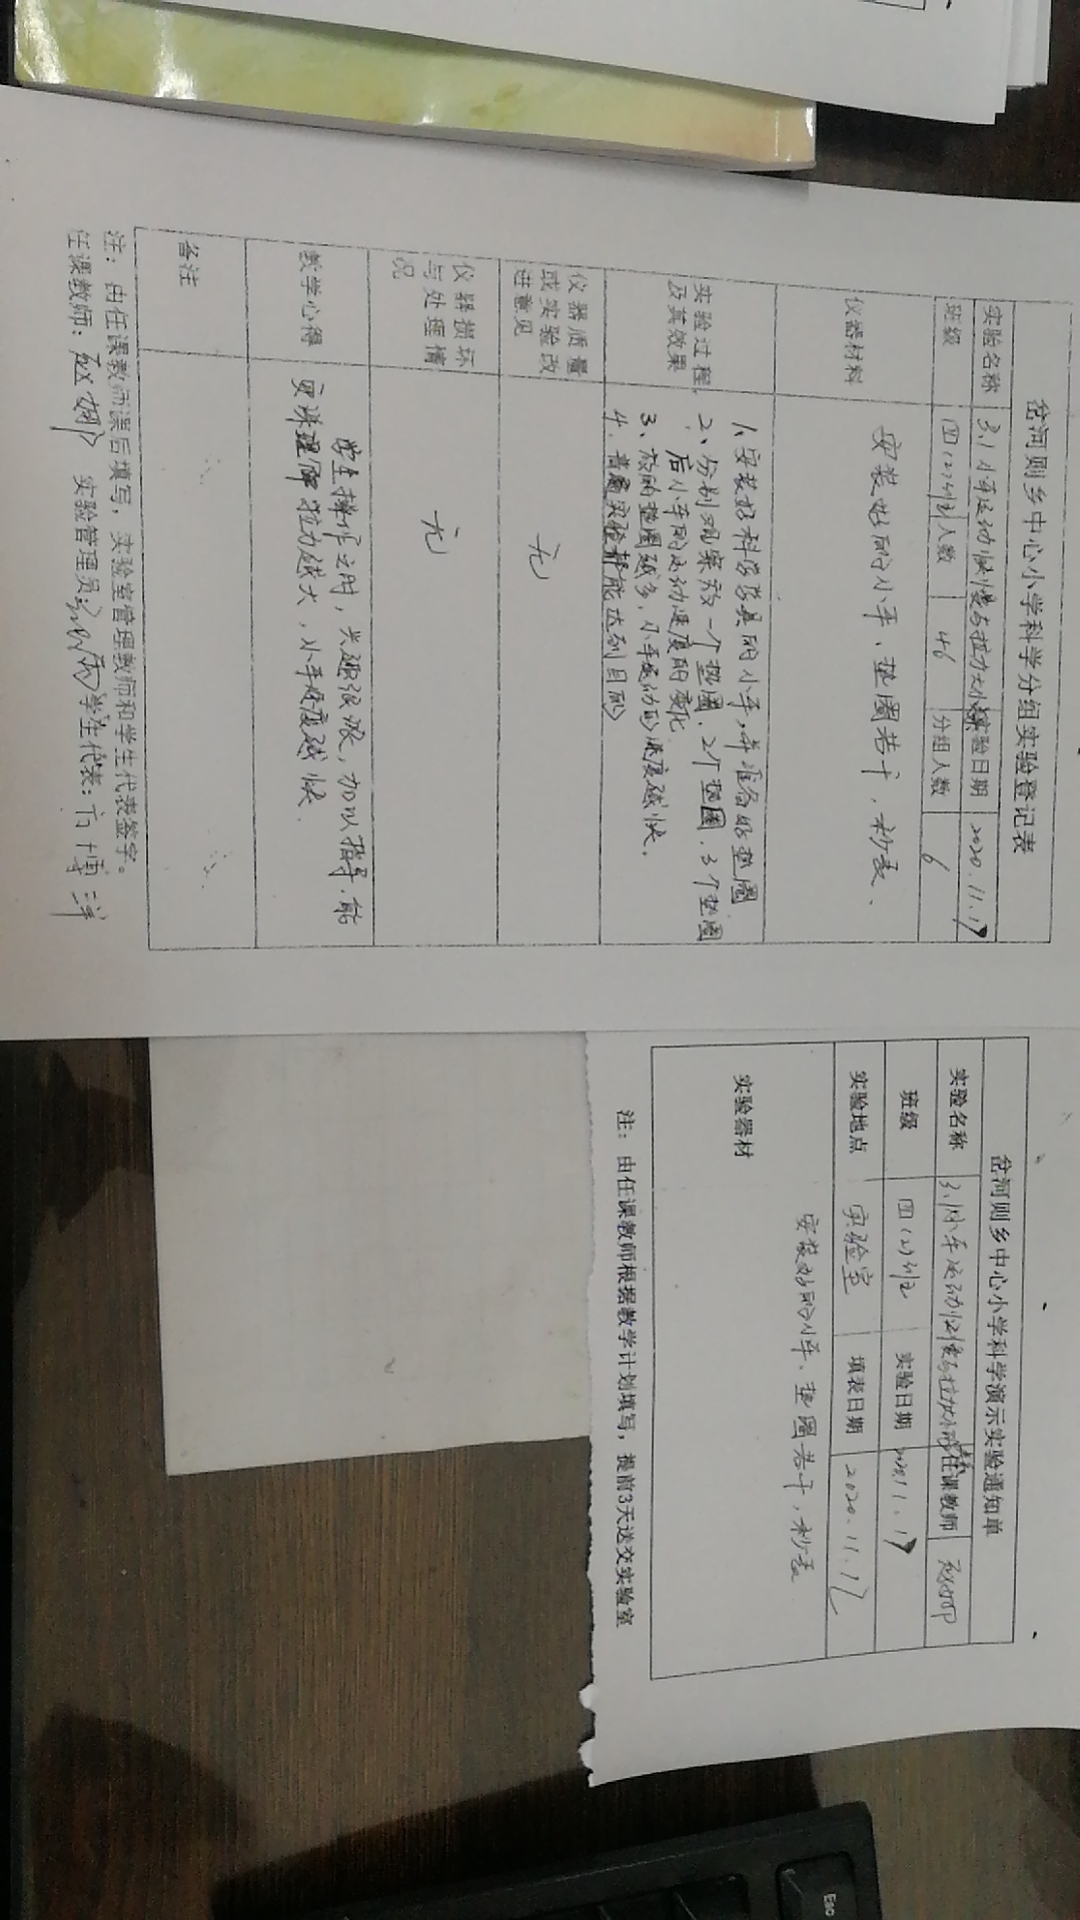 岔河则乡中心小学科学分组实验登记表
实验名称 3.1小车运动快慢与拉力大小 实验日期 2020.11.17
班级 四(2)班 人数 46 分组人数 6
仪器材料 安装好的小车、垫圈若干,秒表、
实验过程及其效果
1、安装好科学学具的小车,并准备好垫圈
2、分别观察放一个垫圈、2个垫圈、3个垫圈
后小车的运动速度的变化
3、放的垫圈越多,小车运动的速度越快。
4、实验都能达到目的
仪器质量或实验改进意见 无
仪器损坏与处理情况 无
教学心得
学生操作之时,兴趣很浓,加以指导,能
理解拉力越大,小车速度越快.
备注
注:由任课教师课后填写,实验室管理教师和学生代表签字。
任课教师: 实验管理员: 学生代表:
岔河则乡中心小学科学演示实验通知单
实验名称 3.1小车运动快慢与拉力大小的 任课教师
班级 四(2)班 实验日期 2020.11.17
实验地点 实验室 填表日期 2020.11.12
实验器材 安装好的小车、垫圈若干,秒表
注:由任课教师根据教学计划填写,提前3天送交实验室
Esc